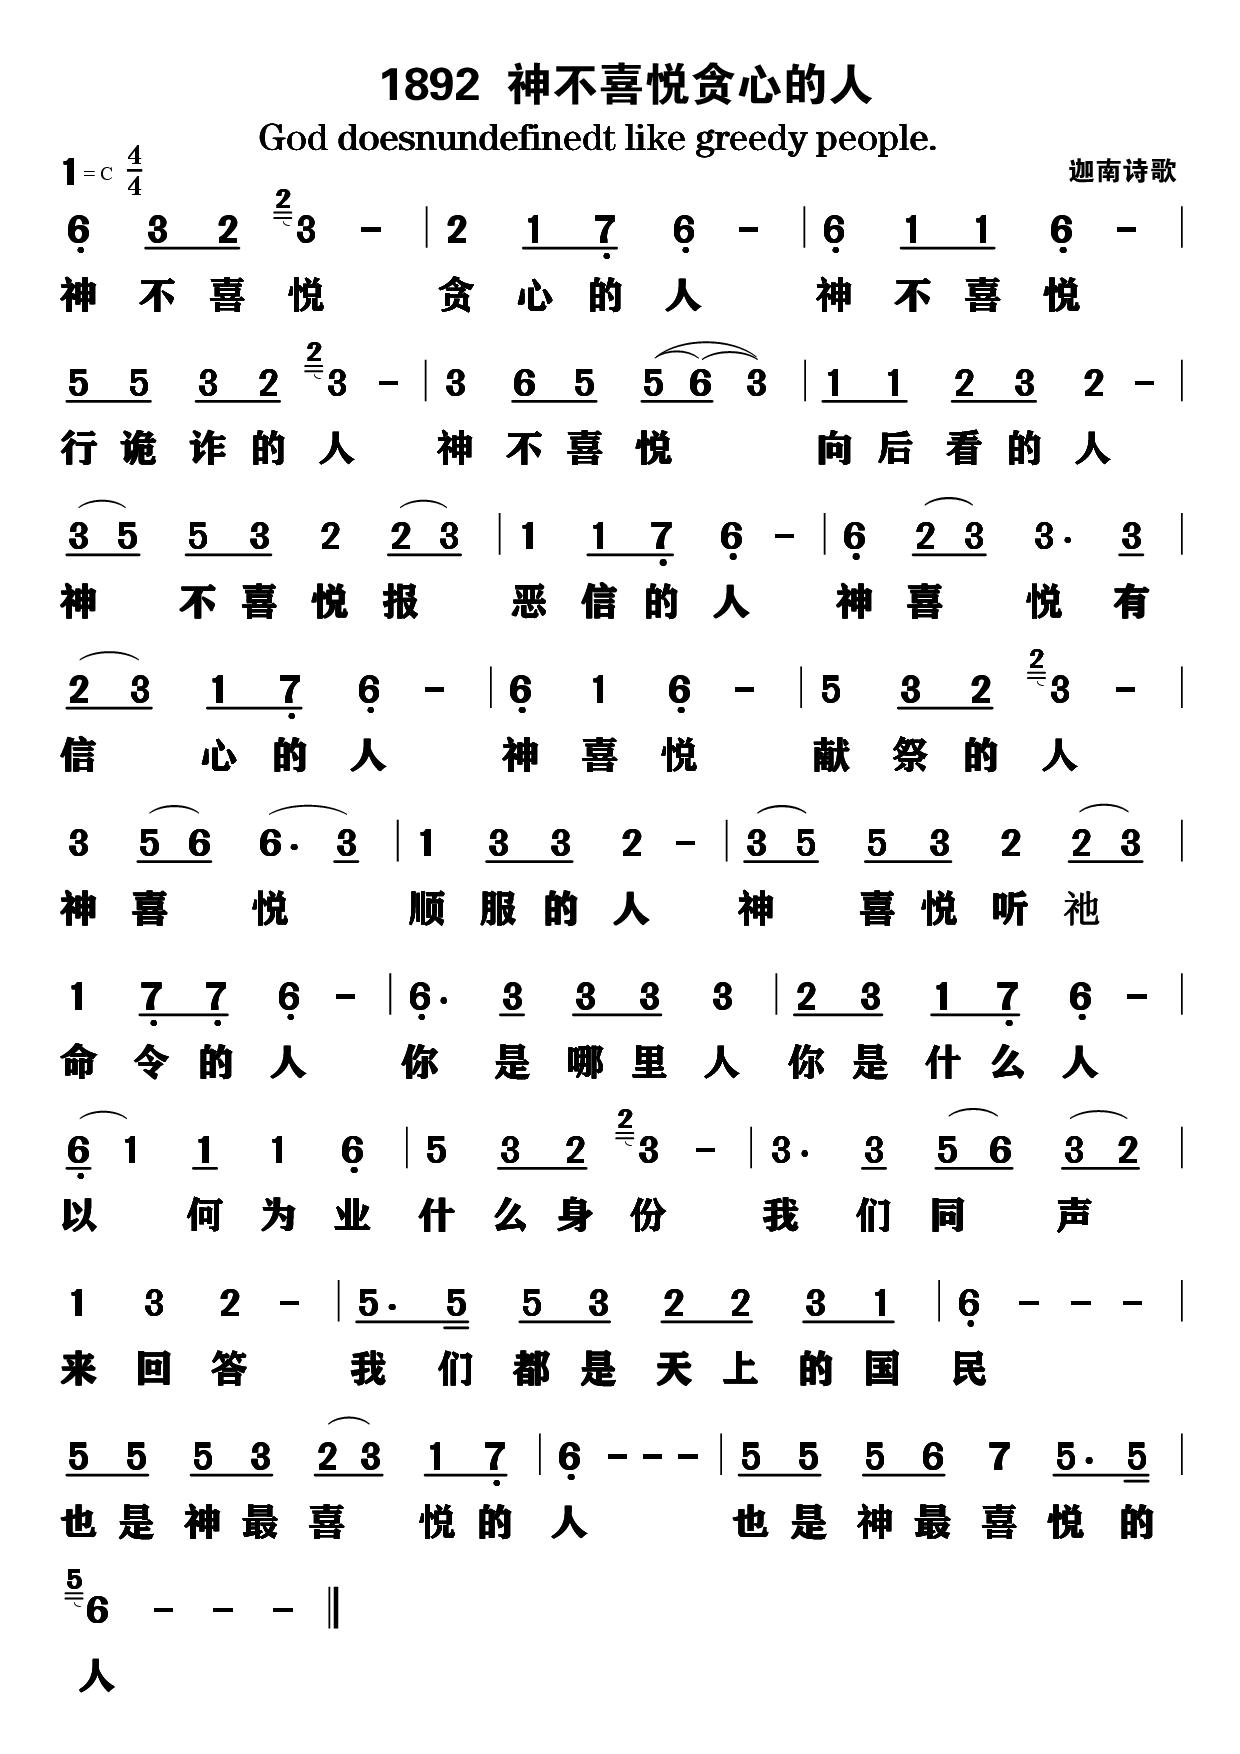 1892 神不喜悦贪心的人
God doesnundefinedt like greedy people.
1=C 4/4 迦南诗歌
6̣ 3 2 ²3 - | 2 1 7̣ 6̣ - | 6̣ 1 1 6̣ - |
神不喜悦 贪心的人 神不喜悦
5 5 3 2 ²3 - | 3 6 5 5 6 3 | 1 1 2 3 2 - |
行诡诈的人 神不喜悦 向后看的人
3 5 5 3 2 2 3 | 1 1 7̣ 6̣ - | 6̣ 2 3 3. 3 |
神不喜悦报 恶信的人 神喜悦有
2 3 1 7̣ 6̣ - | 6̣ 1 6̣ - | 5 3 2 ²3 - |
信心的人 神喜悦 献祭的人
3 5 6 6. 3 | 1 3 3 2 - | 3 5 5 3 2 2 3 |
神喜悦 顺服的人 神喜悦听祂
1 7̣ 7̣ 6̣ - | 6̣. 3 3 3 3 | 2 3 1 7̣ 6̣ - |
命令的人 你是哪里人 你是什么人
6̣ 1 1 1 6̣ | 5 3 2 ²3 - | 3. 3 5 6 3 2 |
以何为业 什么身份 我们同声
1 3 2 - | 5. 5 5 3 2 2 3 1 | 6̣ - - - |
来回答 我们都是天上的国民
5 5 5 3 2 3 1 7̣ | 6̣ - - - | 5 5 5 6 7 5. 5 |
也是神最喜悦的人 也是神最喜悦的
⁵6 - - - ‖
人